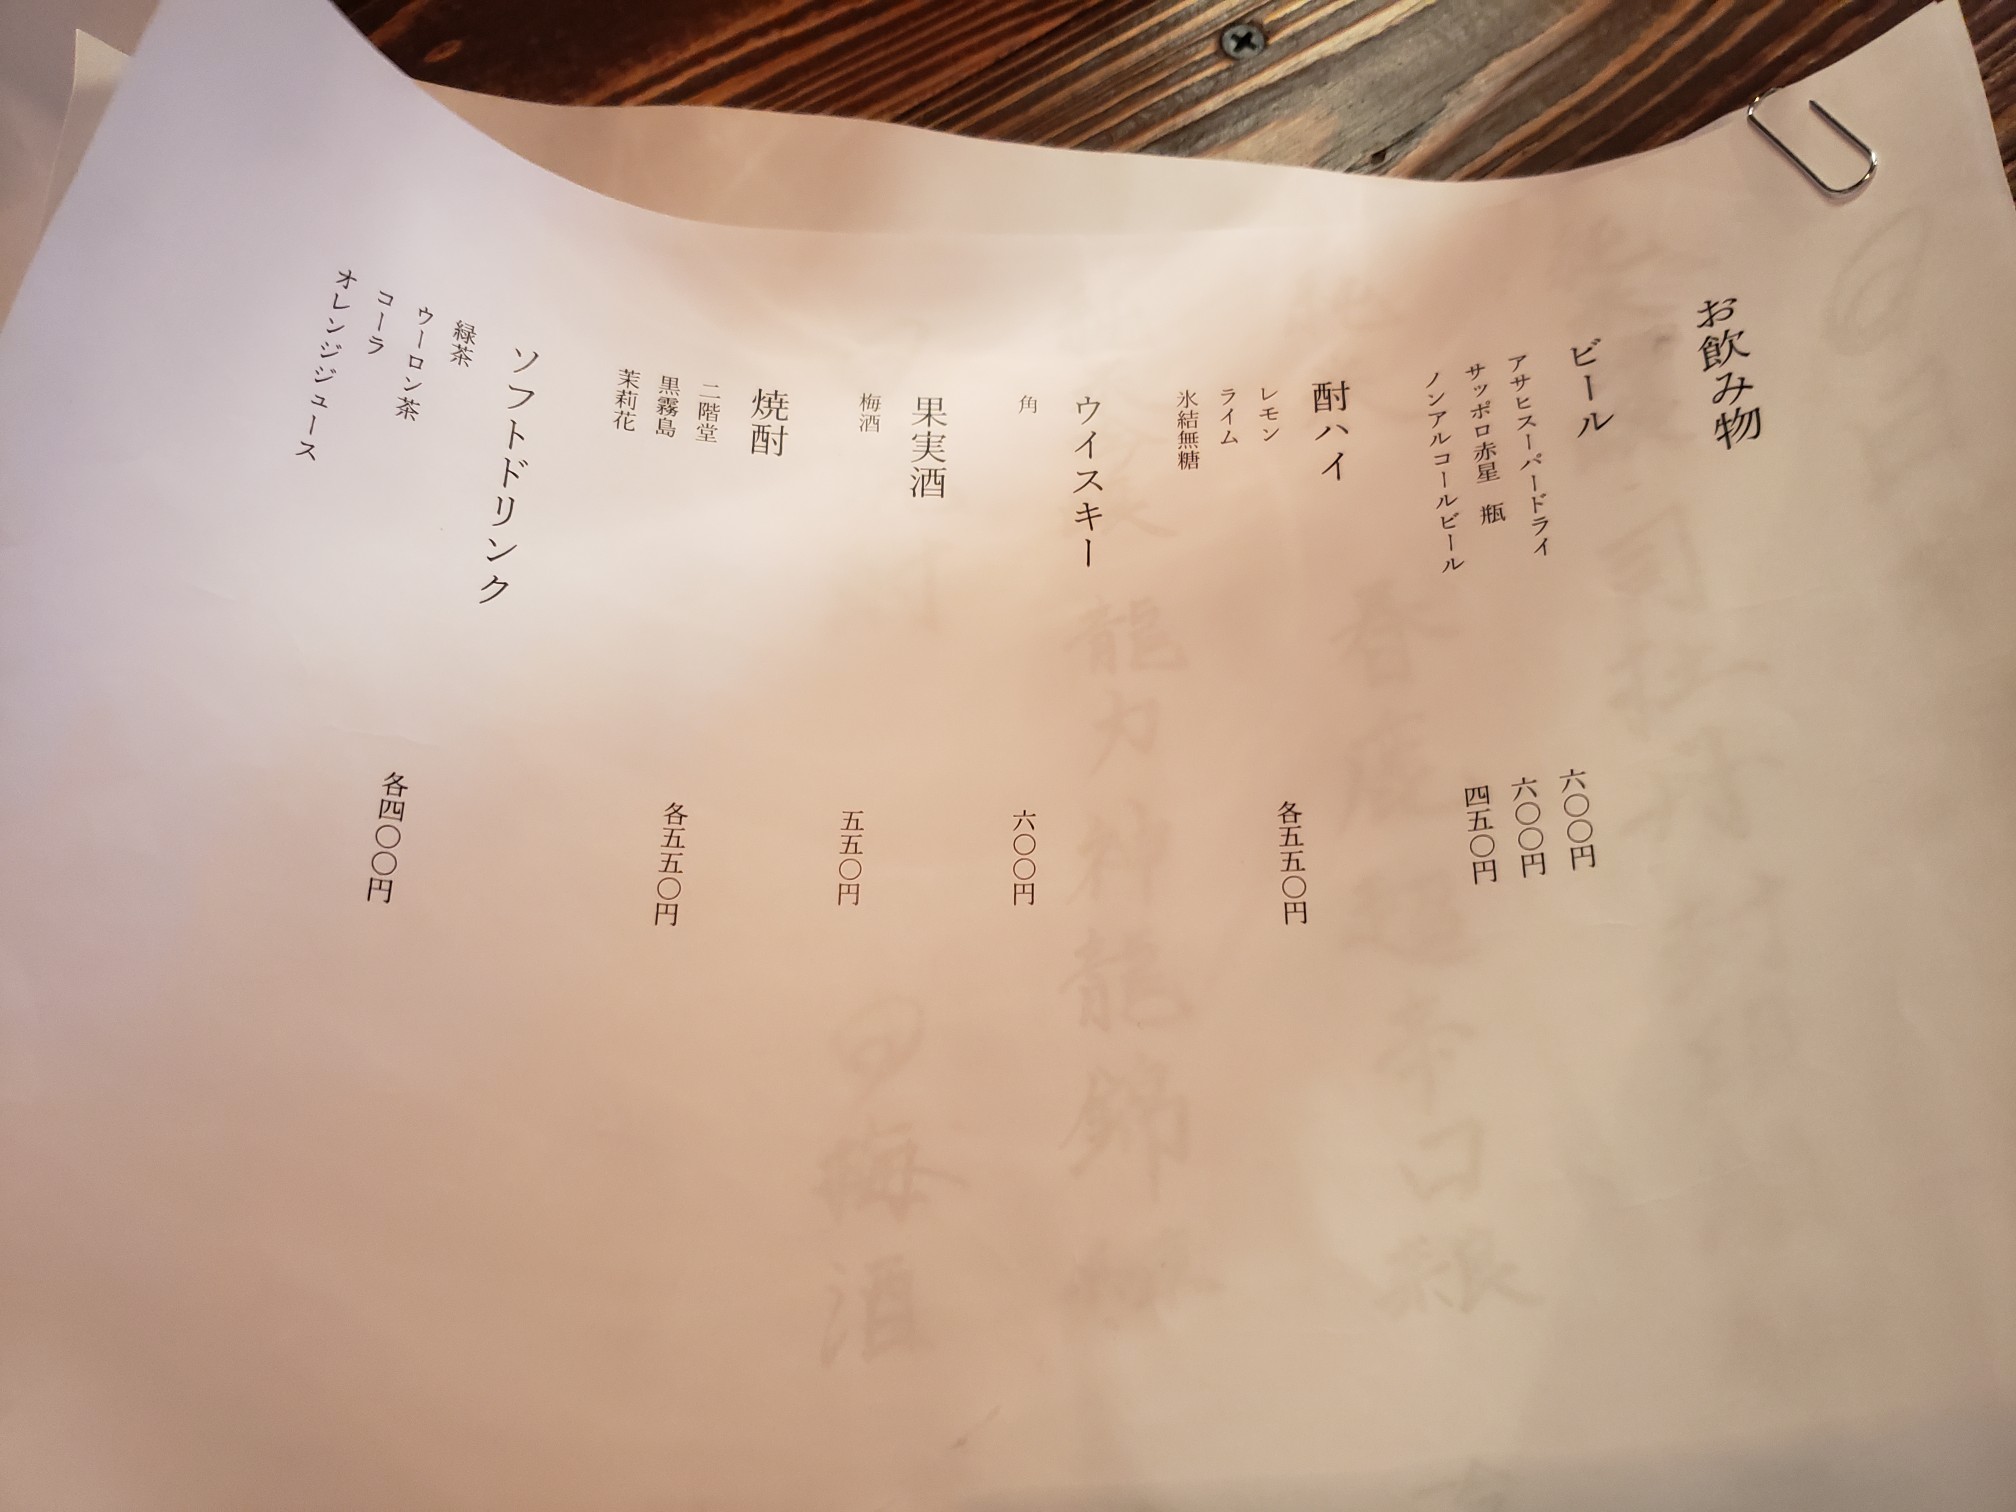 お飲み物
ビール
アサヒスーパードライ
六〇〇円
サッポロ赤星 瓶
六〇〇円
ノンアルコールビール
四五〇円
酎ハイ
レモン
ライム
氷結無糖
各五五〇円
ウイスキー
角
六〇〇円
果実酒
梅酒
五五〇円
焼酎
二階堂
黒霧島
茉莉花
各五五〇円
ソフトドリンク
緑茶
ウーロン茶
コーラ
オレンジジュース
各四〇〇円